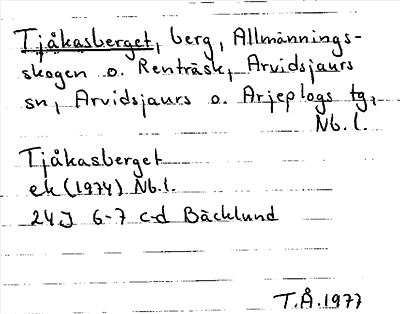 Tjåkasberget, berg, Allmännings-
skogen o. Renträsk, Arvidsjaurs
sn, Arvidsjaurs o. Arjeplogs tg,
Nb. l.
Tjåkasberget
ek (1974) Nb. l.
24J 6-7 c-d Bäcklund
T.Å. 1977